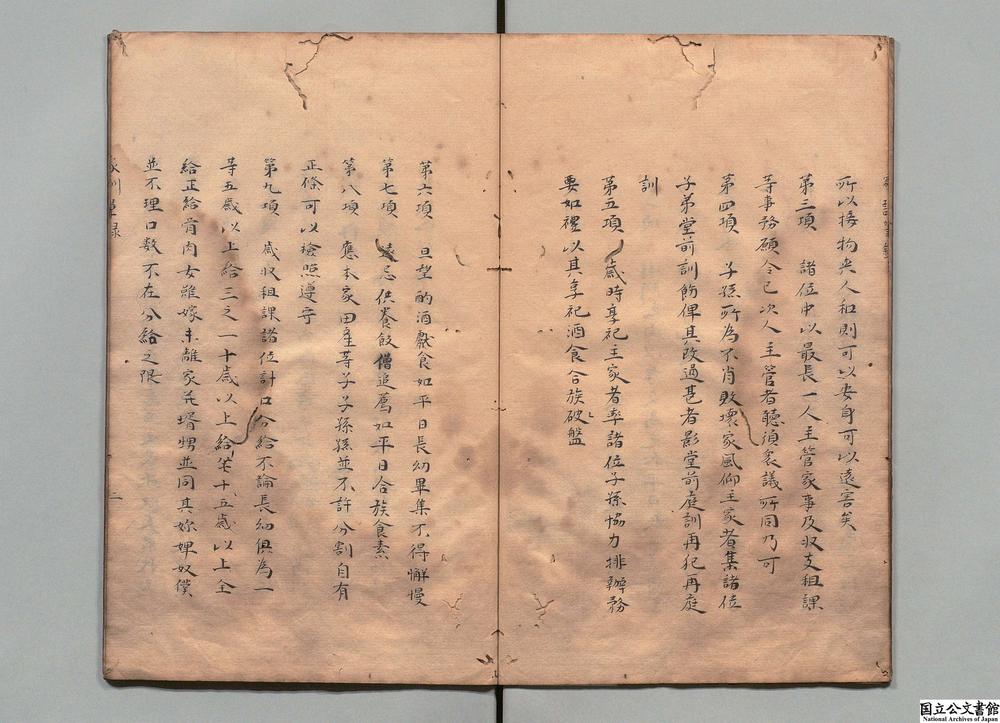 所以接物與人和則可以安身可以遠害矣
第三項 諸位中以最長一人主管家事及収支租課
等事務願令已次人主管者聽須衆議所同乃可
第四項 子孫所為不肖敗壞家風仰主家者集諸位
子弟堂前訓飭俾其改過甚者影堂前庭訓再犯再庭
訓
第五項 歲時享祀主家者率諸位子孫恊力排辦務
要如禮以其享祀酒食合族破盤
第六項 旦望酌酒獻食如平日長幼畢集不得懈慢
第七項 遠忌供養飯僧追薦如平日合族食素
第八項 應本家田産等子子孫孫並不許分割自有
正條可以檢照遵守
第九項 歲収租課諸位計口分給不論長幼俱為一
等五歲以上給三之一十歲以上給半十五歲以上全
給正給骨肉女雖嫁未離家并壻甥並同其妳婢奴僕
並不理口數不在分給之限
家訓筆録
二
国立公文書館
National Archives of Japan